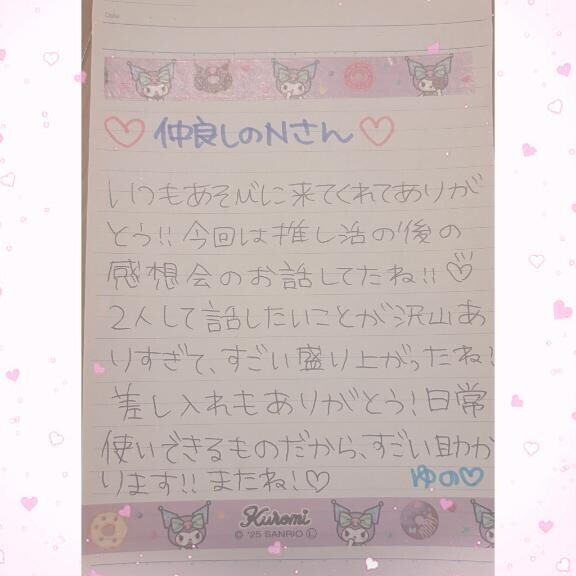 Date
仲良しのNさん
いつもあそびに来てくれてありが
とう!!今回は推し活の後の
感想会のお話してたね!!
2人して話したいことが沢山あ
りすぎて、すごい盛り上がったね!
差し入れもありがとう!日常
使いできるものだから、すごい助か
ります!!またね!♡
ゆの♡
Kuromi
© '25 SANRIO Ⓛ